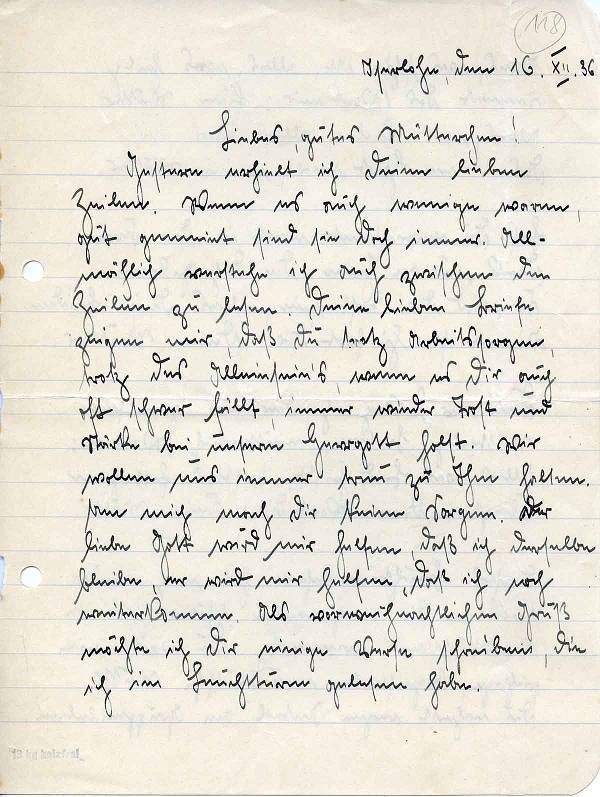 118
Iserlohn, den 16. XII. 36
Liebes, gutes Mütterchen!
Gestern erhielt ich Deine lieben
Zeilen. Wenn es auch wenige waren,
gut gemeint sind sie doch immer. All-
mählich verstehe ich auch zwischen den
Zeilen zu lesen. Deine lieben Briefe
zeigen mir, daß Du trotz Arbeitssorgen,
trotz des Alleinseins, wenn es Dir auch
oft schwer fällt, immer wieder Trost und
Stärke bei unserm Herrgott holst. Wir
wollen uns immer treu zu Ihm halten.
Um mich mach Dir keine Sorgen. Der
liebe Gott wird mir helfen, daß ich derselbe
bleibe, er wird mir helfen, daß ich noch
weiterkomme. Als vorweihnachtlichen Gruß
möchte ich Dir einige Verse schreiben, die
ich im Leuchtturm gelesen habe.
holzfrei